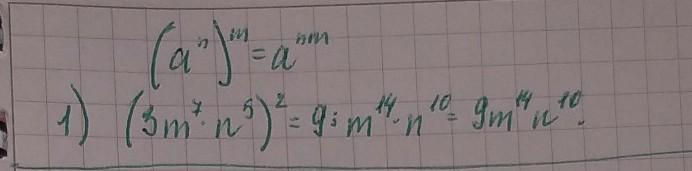 (aⁿ)ᵐ = aⁿᵐ
1) (3m⁷·n⁵)² = 9·m¹⁴·n¹⁰ = 9m¹⁴n¹⁰.